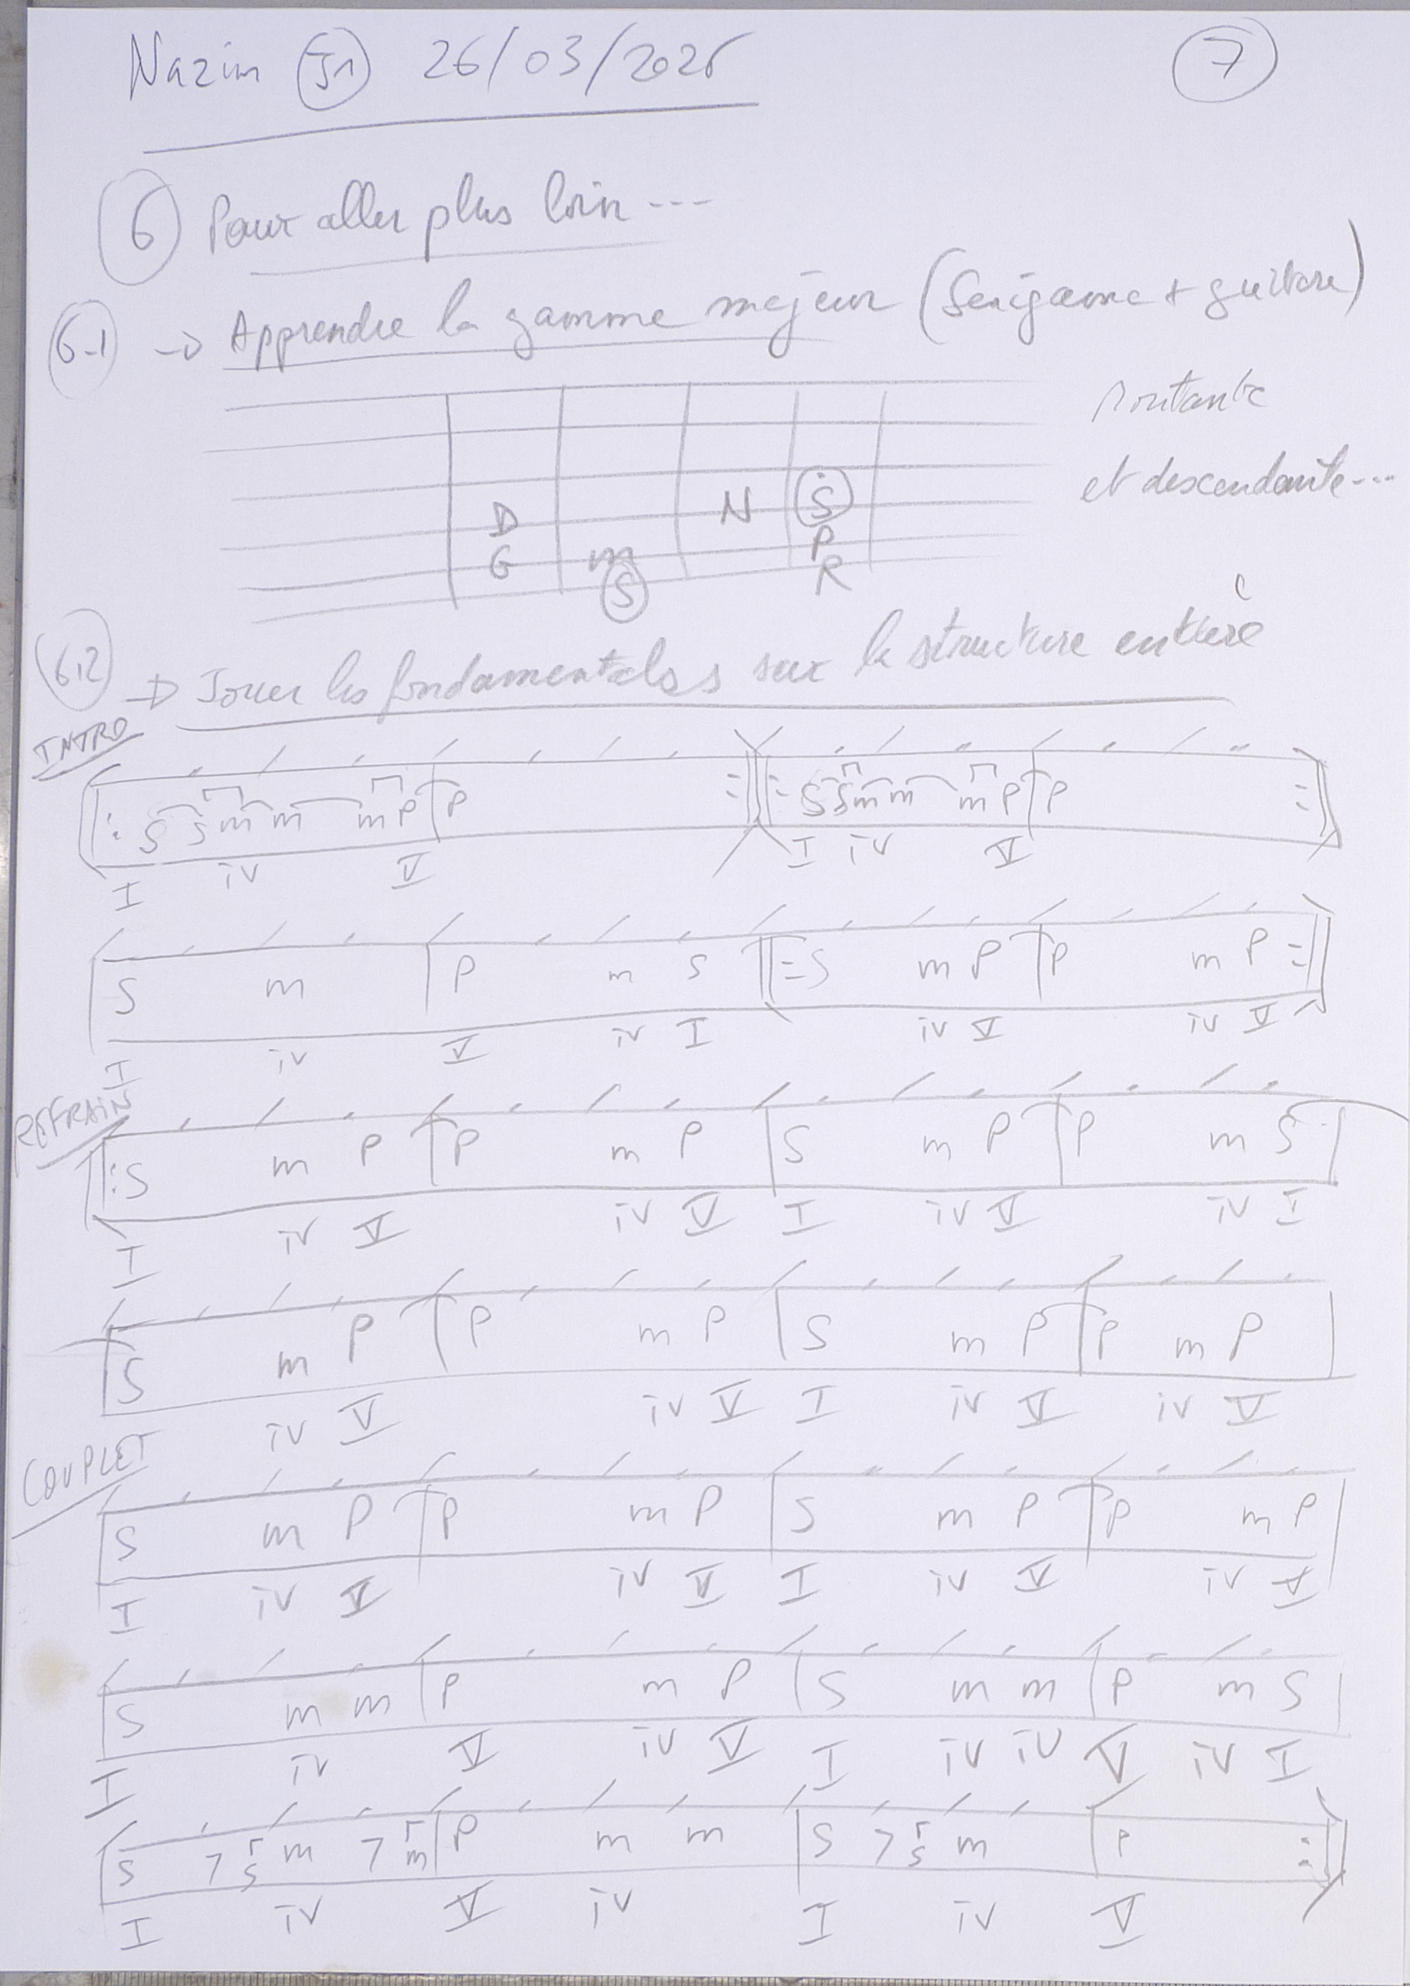 Nazim J1 26/03/2026 7
6 Pour aller plus loin ---
6-1 → Apprendre la gamme majeur (Sarigama + guitare)
montante
et descendante...
D N Ṡ
G m P
S R
6.2 → Jouer les fondamentales sur la structure entière
INTRO
S S m m m P P S S m m m P P
I iv V I iv V
S m P m S S m P P m P
I iv V iv I iv V iv V
REFRAIN
S m P P m P S m P P m S
I iv V iv V I iv V iv I
S m P P m P S m P P m P
iv V iv V I iv V iv V
COUPLET
S m P P m P S m P P m P
I iv V iv V I iv V iv V
S m m P m P S m m P m S
I iv V iv V I iv iv V iv I
S 7 S m 7 m P m m S 7 S m P
I iv V iv I iv V